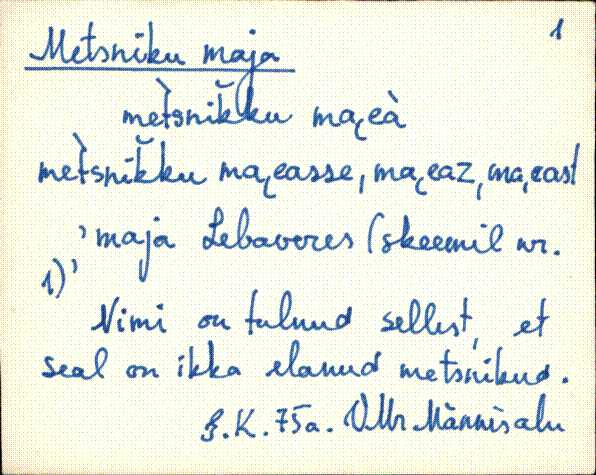 1
Metsniku maja
mètsnik̆ku ma̭eà
mètsnik̆ku ma̭easse, ma̭eaz, ma̭east
'maja Lebaveres (skeemil nr.
1)'
Nimi on tulnud sellest, et
seal on ikka elanud metsnikud.
K. 75a. VMr Männisalu